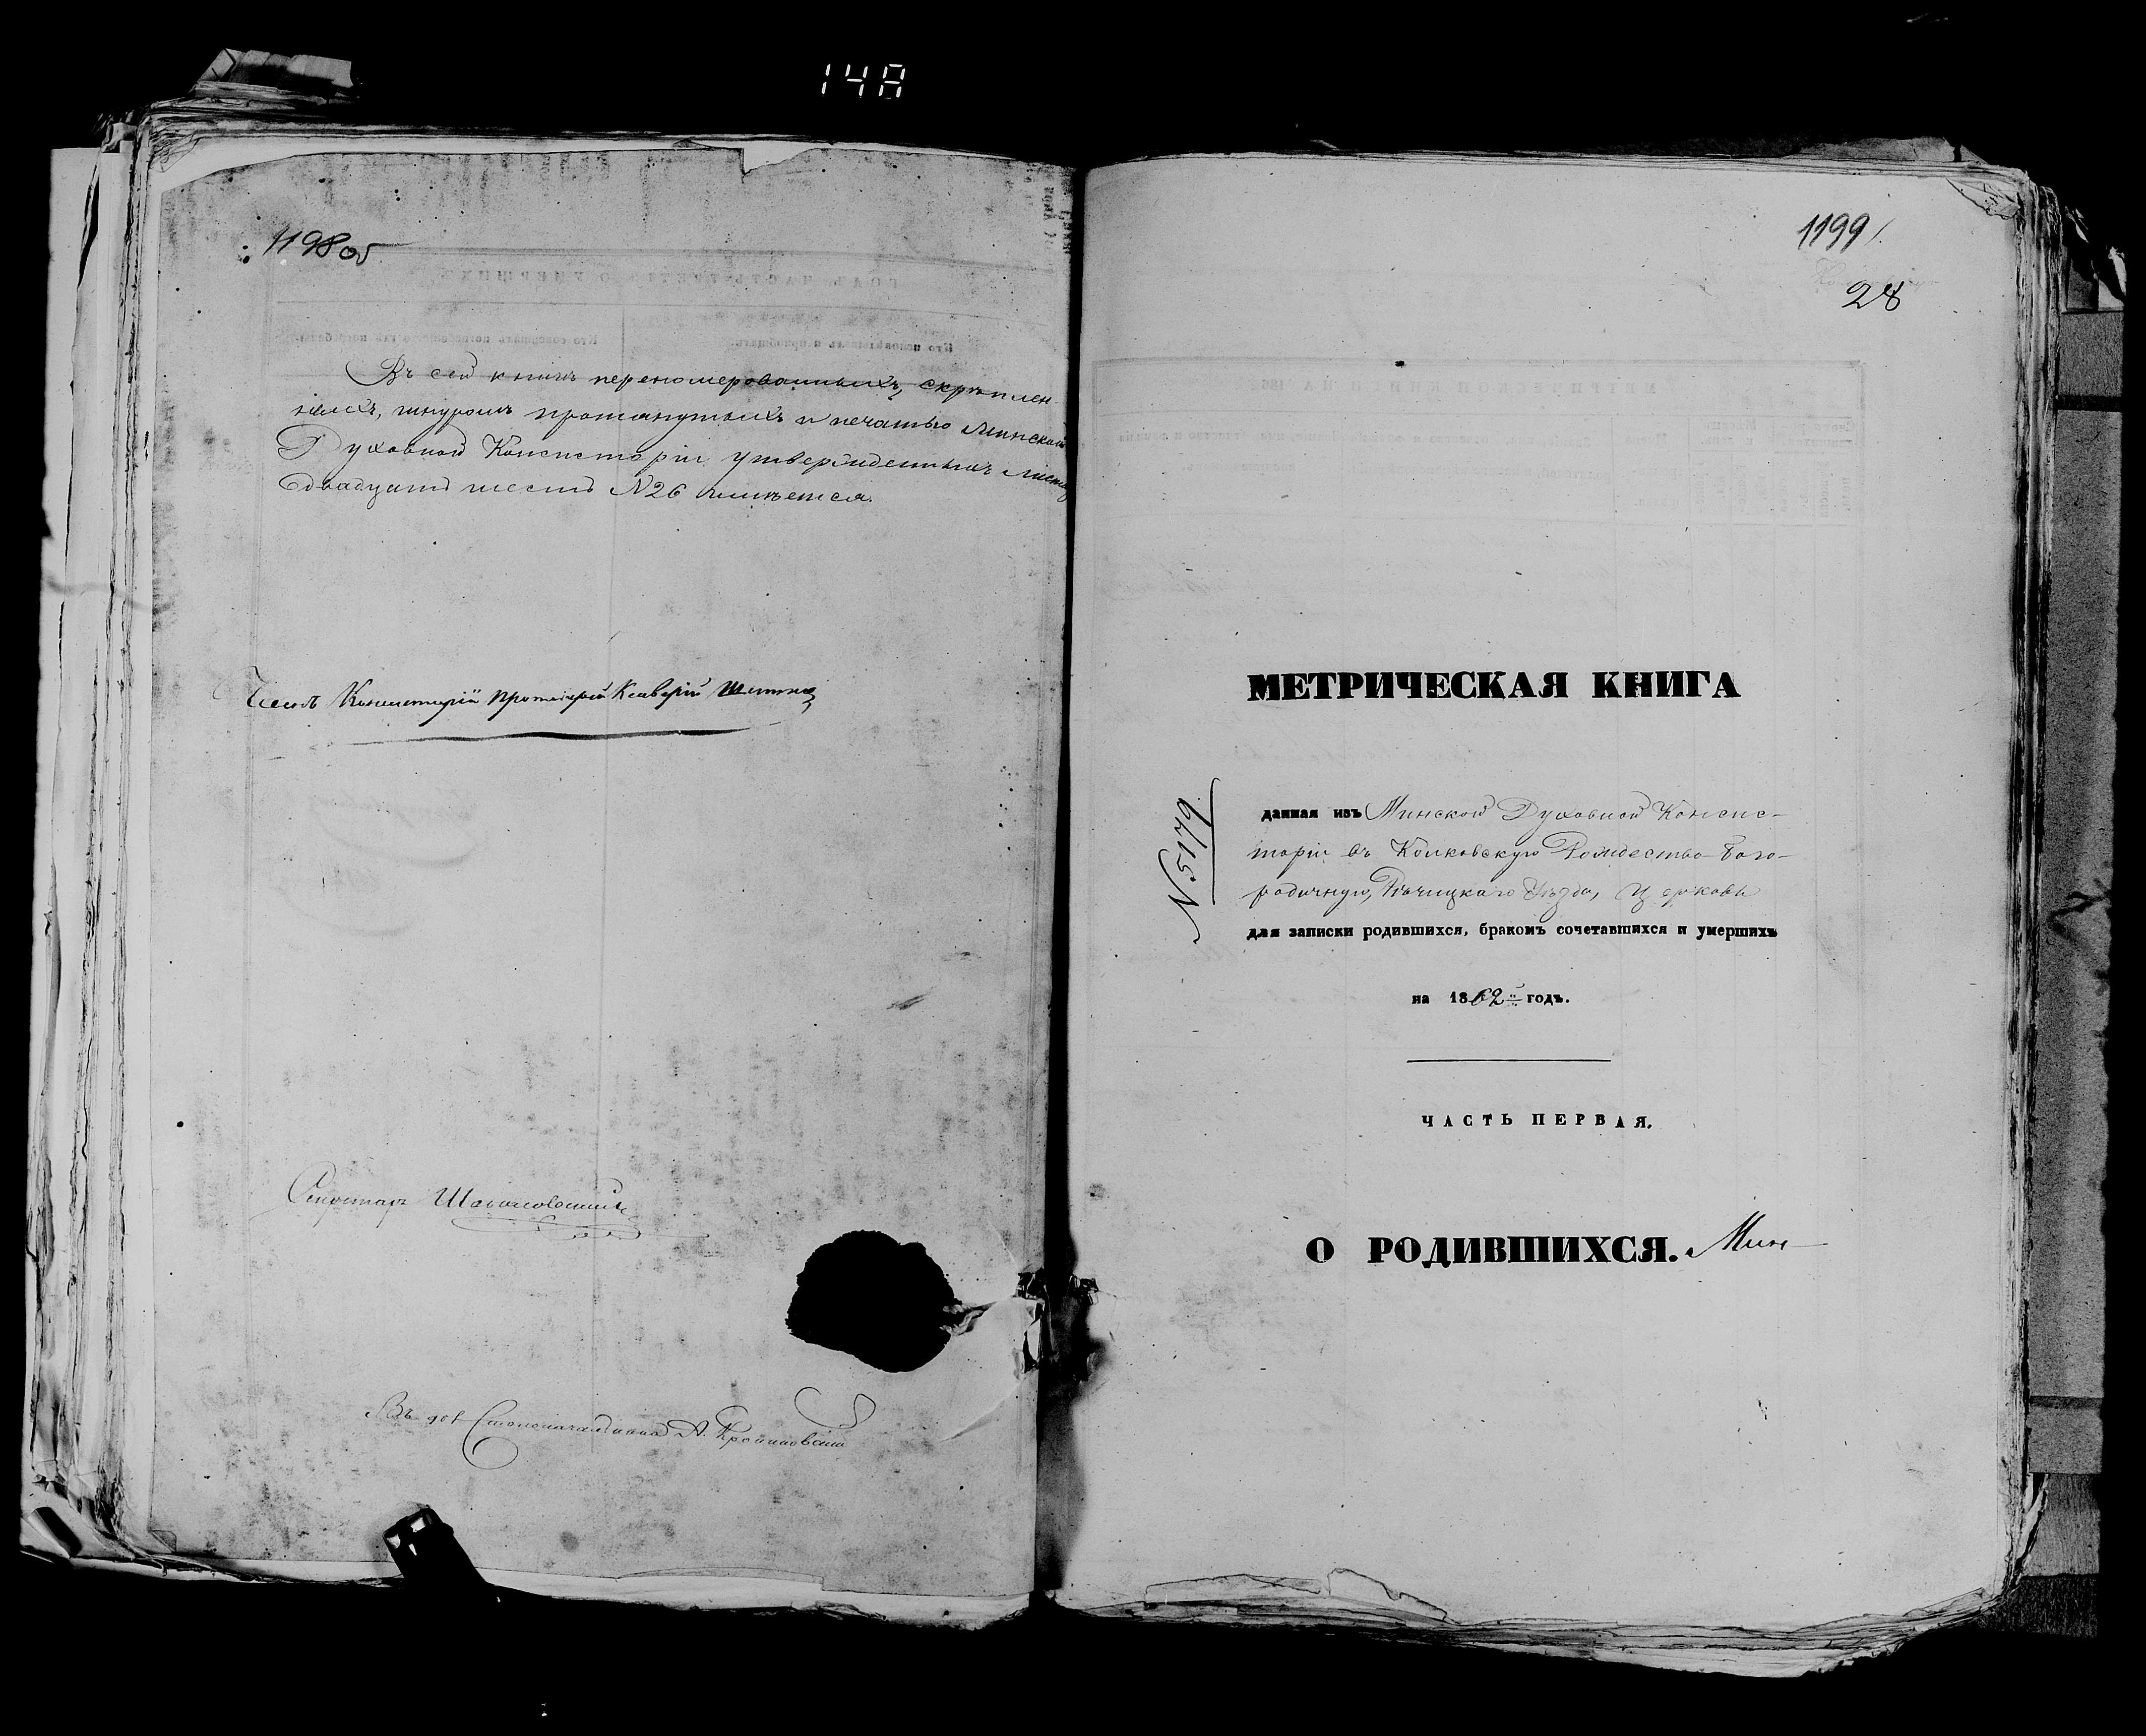 148
1198 об
Въ сей книгѣ перенумерованныхъ, скрѣплен
ныхъ, шнуромъ протянутыхъ и печатью Минской
Духовной Консисторіи утвержденныхъ листовъ
двадцать шесть №26 имѣется.
Членъ Консисторіи Протоіерей Ксаверій
Секретарь
Въ дол Столоначальника А.
1199
28
МЕТРИЧЕСКАЯ КНИГА
№ 5179
данная изъ Минской Духовной Консис-
торіи въ Колковскую Рождество-Бого-
родичную, Рѣчицкаго Уѣзда, Церковь
для записки родившихся, бракомъ сочетавшихся и умершихъ
на 1862й годъ.
ЧАСТЬ ПЕРВАЯ.
О РОДИВШИХСЯ. Мин